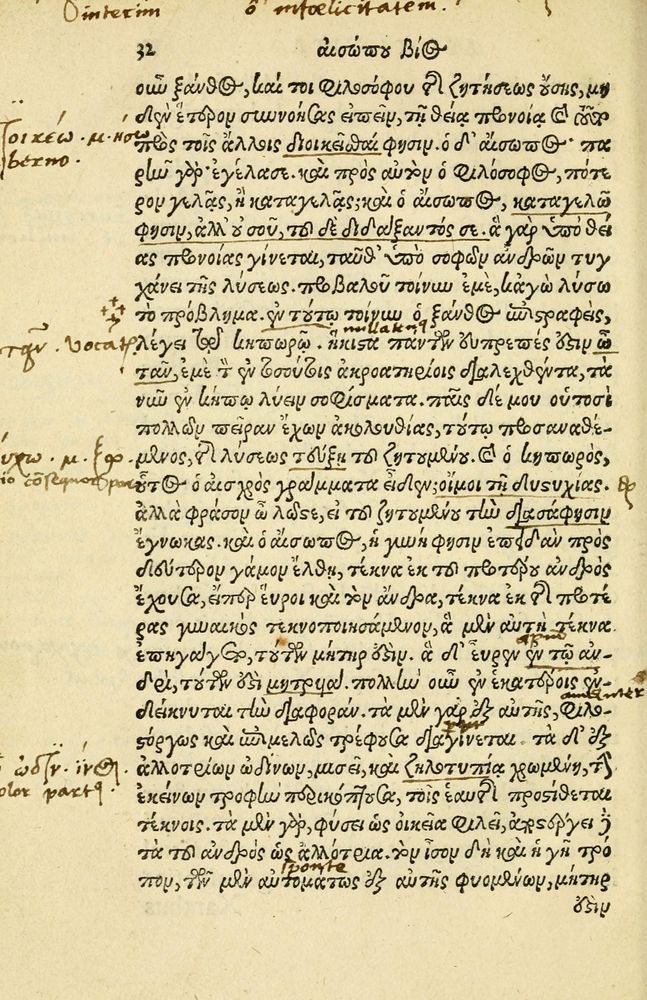 interim ὁ infœlicitatem.
32 αἰσώπου βίος
οὖν ξάνθος, καί τοι φιλοσόφου τῆς ζητήσεως οὔσης, μη
δὲν ἕτερον συννοήσας εἰπεῖν, τῇ θεία προνοία καὶ ὥσπερ
πρὸς τοῖς ἄλλοις διοικεῖσθαι φησιν. ὁ δ' αἴσωπος παρ
ην γὰρ ἐγέλασε. καὶ πρὸς αὐτὸν ὁ φιλόσοφος, πότε
ρον γελᾷς, ἢ καταγελᾷς; καὶ ὁ αἴσωπος, καταγελῶ
φησιν, ἀλλ' οὐ σοῦ, τοῦ δὲ διδαξαντός σε. ἃ γὰρ ὑπὸ θεί
ας προνοίας γίνεται, ταῦθ' ὑπὸ σοφῶν ἀνδρῶν τυγ
χάνει τῆς λύσεως. προβαλοῦ τοίνυν ἐμὲ, κᾀγὼ λύσω
τὸ πρόβλημα. ἐν τούτῳ τοίνυν ὁ ξάνθος ἐπιστραφεὶς,
λέγει τῷ κηπωρῷ. ἥκιστα πάντων εὐπρεπές ἐστιν ὦ
τᾶν, ἐμὲ τὸν ἐν τοσούτοις ἀκροατηρίοις διαλεχθέντα, τὰ
νῦν ἐν κήπῳ λύειν σοφίσματα. παῖς δέ μου οὑτοσὶ
πολλῶν πεῖραν ἔχων ἀκολουθίας, τούτῳ προσαναθέ-
μενος, τῆς λύσεως τεύξῃ τοῦ ζητουμένου. καὶ ὁ κηπωρὸς,
οὗτος ὁ αἰσχρὸς γράμματα εἶδεν; οἴμοι τῆς δυστυχίας.
ἀλλὰ φράσον ὦ λῷστε, εἰ τοῦ ζητουμένου τὴν διασάφησιν
ἔγνωκας. καὶ ὁ αἴσωπος, ἡ γυνὴ φησιν ἐπειδὰν πρὸς
δεύτερον γάμον ἔλθῃ, τέκνα ἐκ τοῦ προτέρου ἀνδρὸς
ἔχουσα, εἴπερ εὕροι καὶ τὸν ἄνδρα, τέκνα ἐκ τῆς προτέ
ρας γυναικὸς τεκνοποιησάμενον, ἃ μὲν αὐτὴ τέκνα
ἐπηγάγετο, τούτων μήτηρ ἐστίν. ἃ δ' εὗρεν ἐν τῷ ἀν-
δρὶ, τούτων ἐστὶ μητρυιά. πολλὴν οὖν ἐν ἑκατέροις ἐν-
δείκνυται τὴν διαφοράν. τὰ μὲν γὰρ ἐξ αὐτῆς, φιλο-
στόργως καὶ ἐπιμελῶς τρέφουσα διαγίνεται. τὰ δ' ἐξ
ἀλλοτρίων ὠδίνων, μισεῖ, καὶ ζηλοτυπίᾳ χρωμένη, τὴν
ἐκείνων τροφὴν περικόπτουσα, τοῖς ἑαυτῆς προστίθεται
τέκνοις. τὰ μὲν γὰρ, φύσει ὡς οἰκεῖα φιλεῖ, ἀποστέργει δὲ
τὰ τοῦ ἀνδρὸς ὡς ἀλλότρια. τὸν ἴσον δὴ καὶ ἡ γῆ τρό
πον, τῶν μὲν αὐτομάτως ἐξ αὐτῆς φυομένων, μήτηρ
ἐστὶν
sponte